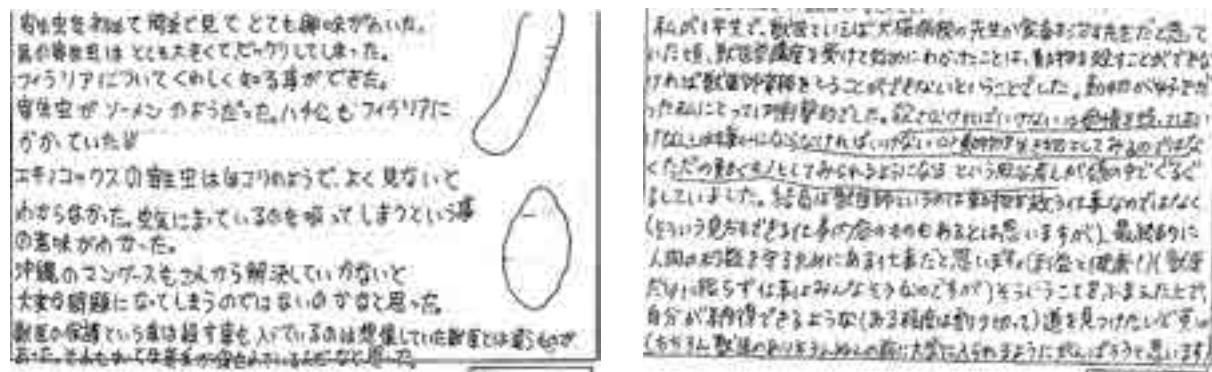 寄生虫を初めて間近で見てとても興味がわいた。
寄生虫はとても大きくて、ビックリしてしまった。
フィラリアについてくわしく知る事ができた。
寄生虫がソーメンのようだった。ハチ公もフィラリアに
かかっていた
エキノコックスの寄生虫はホコリのようで、よく見ないと
わからなかった。空気にまっているのを吸ってしまうという事
の意味がわかった。
沖縄のマングースもこれから解決していかないと
大変な問題になってしまうのではないのかなと思った。
獣医の保護という事は殺す事も入っているのは想像していた獣医とは違うものが
あった。
私が1年生で、獣医といえば犬猫病院の先生が
いた頃、獣医学講座を受けて始めにわかったことは、動物を殺すことができな
ければ獣医師資格をとることができないということでした。動物が好きだ
った私にとっては衝撃的でした。
動物を生き物としてみるのではな
くただの動くモノとしてみられるようになるという
ましていました。結局は獣医師というのは動物を救う仕事なのではなく
(そういう見方をできる仕事内容のものもあるとは思いますが)、最終的に
人間の利益を守るためにある仕事だと思います。(利益と健康!)(獣医
だけに限らず仕事はみんなそうなのですが)そういうことをふまえた上で、
自分が納得できるような(ある程度は割り切って)道を見つけたいと思い
(もちろん
大学に入られるようにがんばろうと思います)